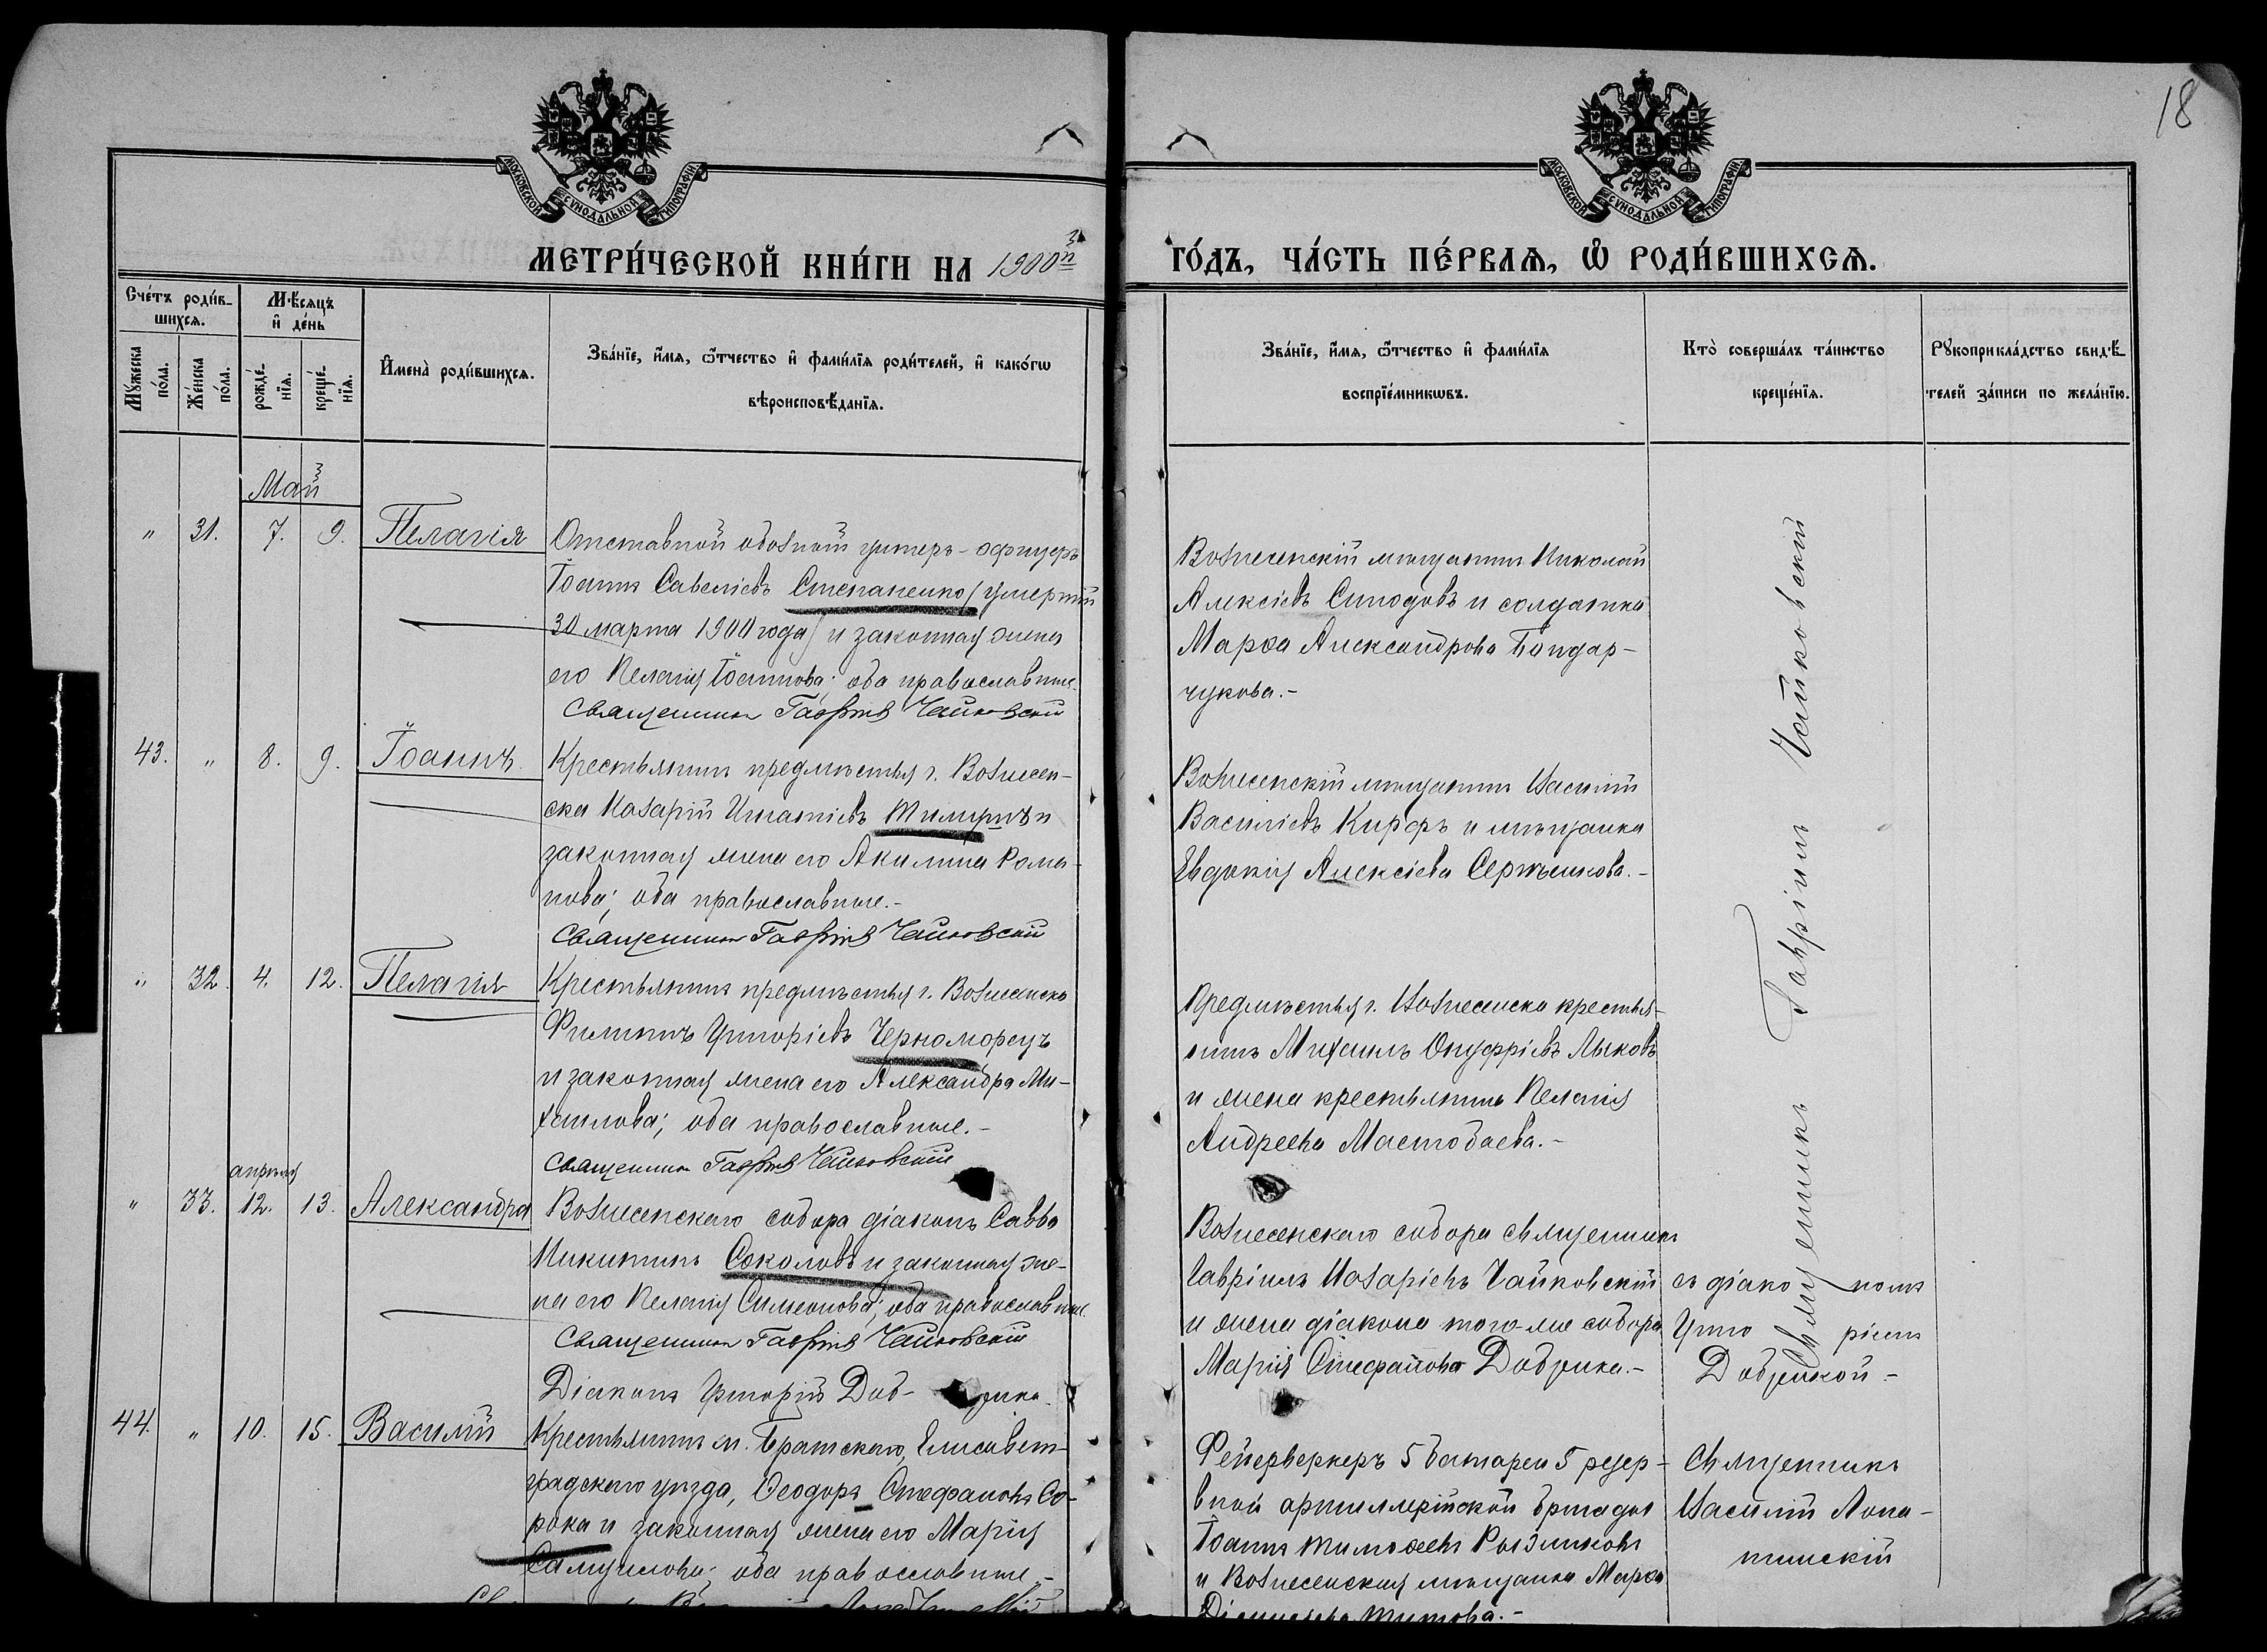 18
МОСКОВСКОЙ СѴНОДАЛЬНОЙ ТИПОГРАФІИ
МОСКОВСКОЙ СѴНОДАЛЬНОЙ ТИПОГРАФІИ
МЕТРИ́ЧЕСКОЙ КНИ́ГИ НА 1900й
ГО́ДЪ, ЧА́СТЬ ПЕ́РВАѦ, Ѡ҆ РОДИ́ВШИХСѦ.
Сче́тъ роди́в-
шихсѧ.
Мѣ́сѧцъ
и҆ де́нь
Мꙋ́жеска по́ла.
Же́нска по́ла.
рожде́-нїѧ.
креще́-нїѧ.
И҆мена̀ роди́вшихсѧ.
Зва́нїе, и҆́мѧ, ѻ҆́тчество и҆ фами́лїѧ роди́телей, и҆ како́гѡ
вѣроисповѣ́данїѧ.
Зва́нїе, и҆́мѧ, ѻ҆́тчество и҆ фами́лїѧ
воспрїе́мникѡвъ.
Кто̀ соверша́лъ та́инство
креще́нїѧ.
Рꙋкоприкла́дство свидѣ́-
телей за́писи по жела́нїю.
Май
" 31. 7. 9. Пелагія
Отставной обозной унтеръ-офицеръ
Іоаннъ Савеліевъ Степаненко (умершій
30 марта 1900 года) и законная жена
его Пелагія Іоаннова; оба православные.
Священникъ Гавріилъ Чайковскій
Вознесенскій мѣщанинъ Николай
Алексіевъ Синодовъ и солдатка
Марѳа Александрова Бондар-
чукова.-
43. " 8. 9. Іоаннъ.
Крестьянинъ предмѣстья г. Вознесен-
ска Назарій Игнатіевъ Тимушъ и
законная жена его Акилина Рома-
нова; оба православные.-
Священникъ Гавріилъ Чайковскій
Вознесенскій мѣщанинъ Василій
Василіевъ Кирфъ и мѣщанка
Евдокія Алексіева Сержымова.-
" 32. 4. 12. Пелагія
Крестьянинъ предмѣстья г. Вознесенска
Филиппъ Григоріевъ Черноморецъ
и законная жена его Александра Ми-
хаилова; оба православные.-
Священникъ Гавріилъ Чайковскій
Предмѣстья г. Вознесенска крестья-
нинъ Михаилъ Онуфріевъ Лыковъ
и жена крестьянина Пелагія
Андреева Мастобаева.-
апрѣля
" 33. 12. 13. Александра
Вознесенскаго собора діаконъ Савва
Никитинъ Соколовъ и законная же-
на его Пелагія Симеонова; оба православные.
Священникъ Гавріилъ Чайковскій
Діаконъ Григорій Доб- жика
Вознесенскаго собора священникъ
Гавріилъ Назаріевъ Чайковскій
и жена діакона того-же собора
Марія Стефанова Добжика.-
Священникъ Гавріилъ Чайковскій
съ діако номъ
Григо ріемъ
Добжикой-
44. " 10. 15. Василій
Крестьянинъ м. Братскаго, Елисавет-
градскаго уѣзда, Ѳеодоръ Стефановъ Со-
рока и законная жена его Марія
Самуилова; оба православные.-
Фейерверкеръ 5 батареи 5 резер-
вной артиллерійской бригады
Іоаннъ Тимоѳеевъ Рызниковъ
и Вознесенская мѣщанка Марѳа
Титова.-
Священникъ
Василій Лопа-
тинскій